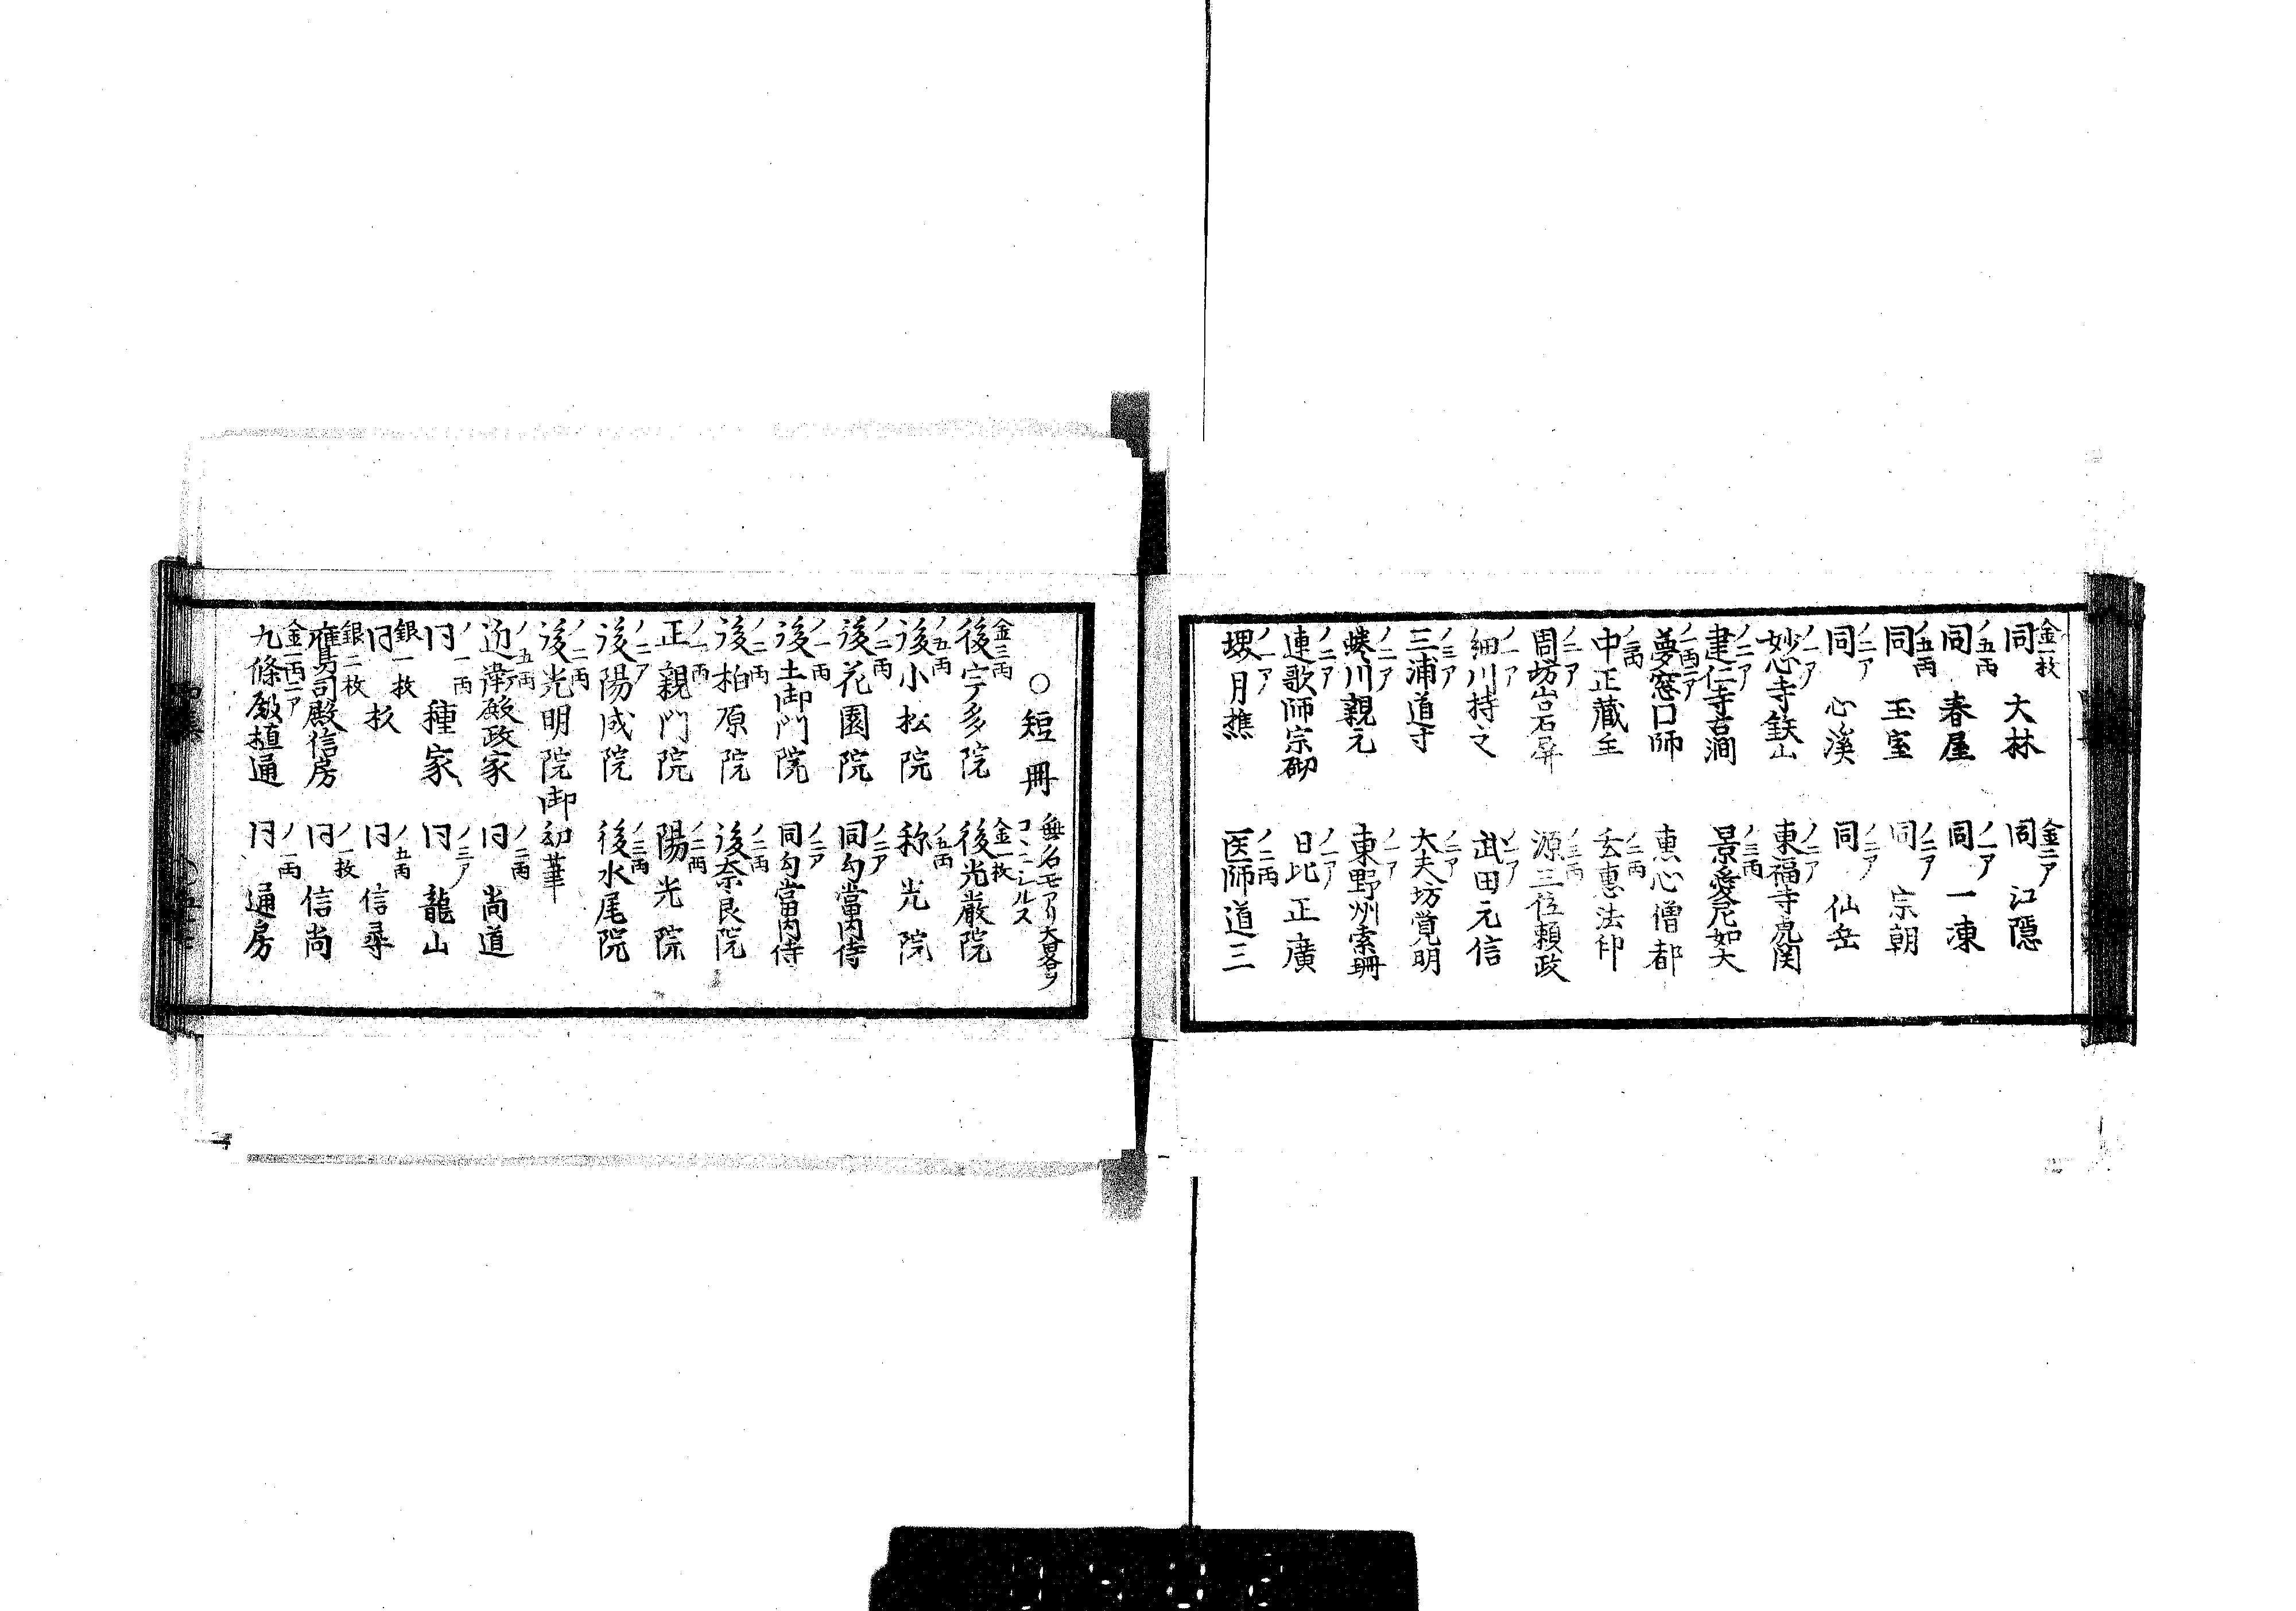 金一枚 同 大林 金二ア 同 江隠
ノ五両 同 春屋 ノ一ア 同 一凍
ノ五両 同 玉室 ノ二ア 同 宗朝
ノ二ア 同 心溪 ノ二ア 同 仙岳
ノ一ア 妙心寺鉄山 ノ二ア 東福寺虎関
ノ二ア 建仁寺古澗 ノ三両 景愛尼如大
ノ一両二ア 夢窓口師 恵心僧都
中正蔵主 ノ二両 玄恵法印
ノ二ア 周坊岩石屏 ノ三両 源三位頼政
ノ一ア 細川持之 ノ二ア 武田元信
ノ三ア 三浦道寸 ノ二ア 大夫坊覚明
ノ二ア 蜷川親元 ノ一ア 東野州素珊
ノ二ア 連歌師宗砌 ノ一ア 日比正廣
ノ一ア 堺月樵 ノ二両 医師道三
○短冊 無名モアリ大畧ヲ
コヽニシルス
金三両 後宇多院 金一枚 後光厳院
ノ五両 後小松院 ノ五両 称光院
ノ二両 後花園院 ノ二ア 同勾當内侍
ノ一両 後土御門院 ノ二ア 同勾當内侍
ノ二両 後柏原院 ノ二両 後奈良院
ノ一両 正親門院 ノ二両 陽光院
ノ二ア 後陽成院 ノ三両 後水尾院
ノ二両 後光明院御初筆
ノ五両 近衛殿政家 ノ二両 同 尚道
ノ一両 同 種家 ノ三ア 同 龍山
銀一枚 同 杉 ノ五両 同 信尋
銀二枚 鷹司殿信房 ノ一枚 同 信尚
金一両一ア 九條殿植通 ノ一両 同 通房